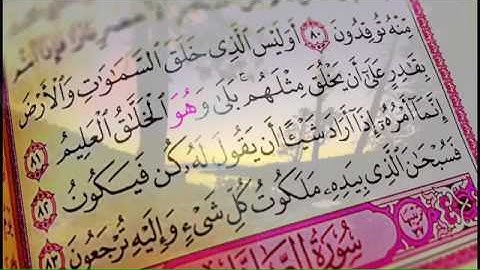 مِّنْهُ تُوقِدُونَ ٨٠ أَوَلَيْسَ الَّذِي خَلَقَ السَّمَٰوَٰتِ وَالْأَرْضَ
بِقَٰدِرٍ عَلَىٰ أَن يَخْلُقَ مِثْلَهُم ۚ بَلَىٰ وَهُوَ الْخَلَّٰقُ الْعَلِيمُ ٨١
إِنَّمَا أَمْرُهُ إِذَا أَرَادَ شَيْئًا أَن يَقُولَ لَهُ كُن فَيَكُونُ ٨٢
فَسُبْحَٰنَ الَّذِي بِيَدِهِ مَلَكُوتُ كُلِّ شَيْءٍ وَإِلَيْهِ تُرْجَعُونَ ٨٣
سُورَةُ الصَّافَّاتِ